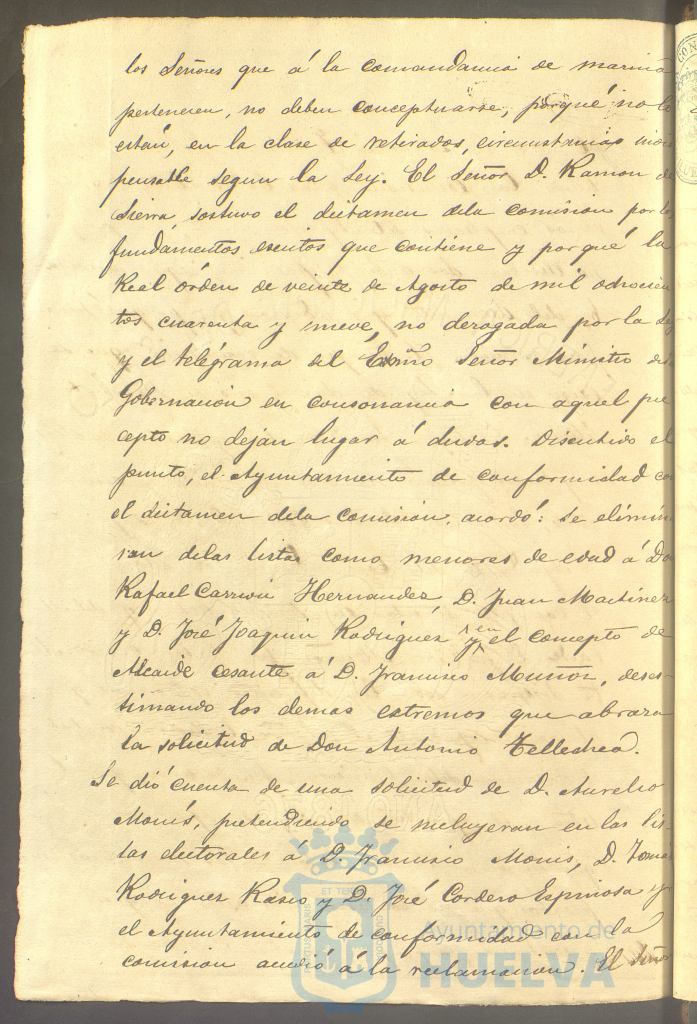 los Señores que á la comandancia de marina
pertenecen, no deben conceptuarse, porqué no lo
están, en la clase de retirados, circunstancia indis
pensable segun la Ley. El Señor D. Ramon de
Sierra sostuvo el dictamen dela comision por los
fundamentos escritos que contiene y porqué la
Real órden de veinte de Agosto de mil ochocien
tos cuarenta y nueve, no derogada por la Ley
y el telégrama del Exmo Señor Ministro de
Gobernacion en consonancia con aquel pre
cepto no dejan lugar á dudas. Discutido el
punto, el Ayuntamiento de conformidad con
el dictamen dela comision, acordó: Se elimin
ran delas listas como menores de edad á Don
Rafael Carrion Hernandez, D. Juan Martinez
y D. José Joaquin Rodriguez y en el concepto de
Alcaide cesante á D. Francisco Muñoz, deses-
timando los demas estremos que abraza
la solicitud de Don Antonio Tellechea.
Se dió cuenta de una solicitud de D. Aurelio
Monis, pretendiendo se incluyeran en las lis-
tas electorales á D. Francisco Monis, D. Tomas
Rodriguez Rasco y D. José Cordero Espinosa y
el Ayuntamiento de conformidad con la
comision accedió á la reclamacion. El Señor
Ayuntamiento de
HUELVA